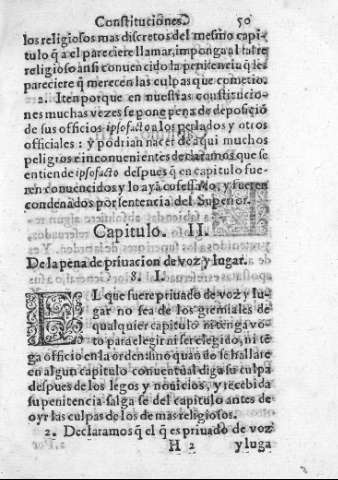 Constituciones. 50
los religiosos mas discretos del mesmo capi-
tulo q̃ a el pareciere llamar, imponga al tal re
religioso ansi conuencido la penitencia q̃ les
pareciere q̃ merecen las culpas que cometio.
2. Iten porque en nuestras constitucio-
nes muchas vezes se pone pena de deposiciõ
de sus officios ipsofacto a los perlados y otros
officiales: y podrian nacer de aqui muchos
peligros e inconuenientes declaramos que se
entiende ipsofacto despues q̃ en capitulo fue-
ren conuencidos y lo ayã cõfessado, y fueren
condenados por sentencia del Superior.
Capitulo. II.
De la pena de priuacion de voz y lugar.
§. I.
EL que fuere priuado de voz y lu-
gar no sea de los gremiales de
qualquier capitulo ni tenga vo-
to para elegir ni ser elegido, ni tẽ
ga officio en la orden sino quando se hallare
en algun capitulo conuentual diga su culpa
despues de los legos y nouicios, y recebida
su penitencia salga se del capitulo antes de
oyr las culpas de los de mas religiosos.
2. Declaramos q̃ el q̃ es priuado de voz
H 2 y luga